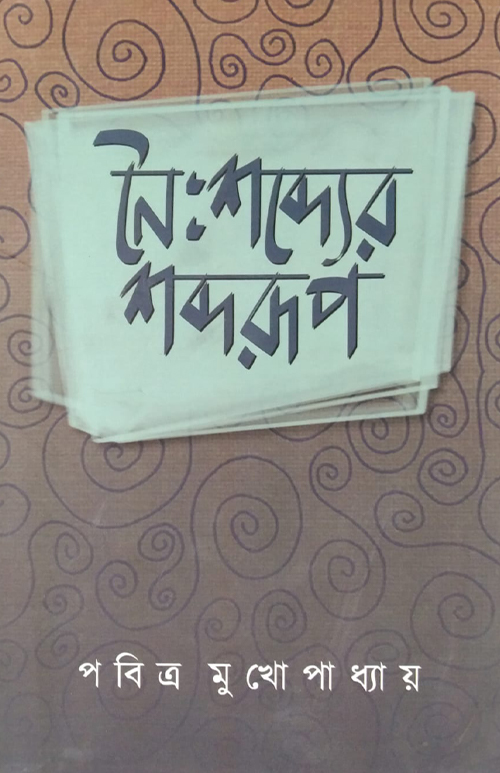 নৈঃশব্দ্যের
শব্দরূপ
পবিত্র মুখোপাধ্যায়